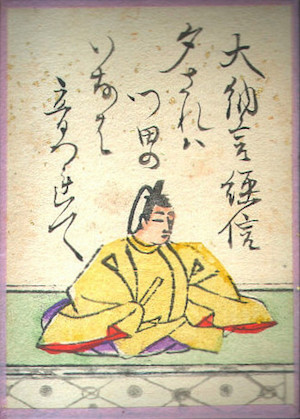 大納言経信
夕されハ
門田の
いなは
音つれて